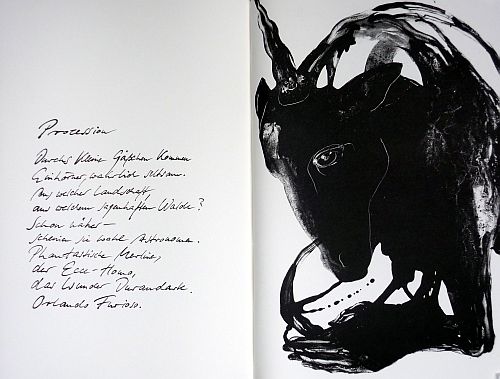 Prozession
Durchs kleine Gäßchen kommen
Einhörner, wahrlich seltsam.
Aus welcher Landschaft,
aus welchem sagenhaften Walde?
Schon näher –
scheinen sie wohl Astronomen.
Phantastische Merline,
der Ecce-Homo,
das Wunder Durandarte.
Orlando Furioso.